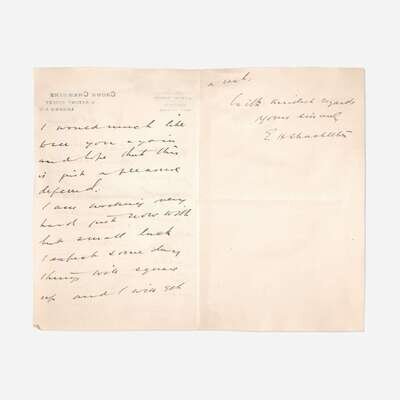 I would much like
to see you again
and hope that this
is just a pleasure
deferred.
I am working very
hard just now with
but small luck
I expect some day
things will square
up and I will get
a rest.
With kindest regards
Yours sincerely
E H Shackleton